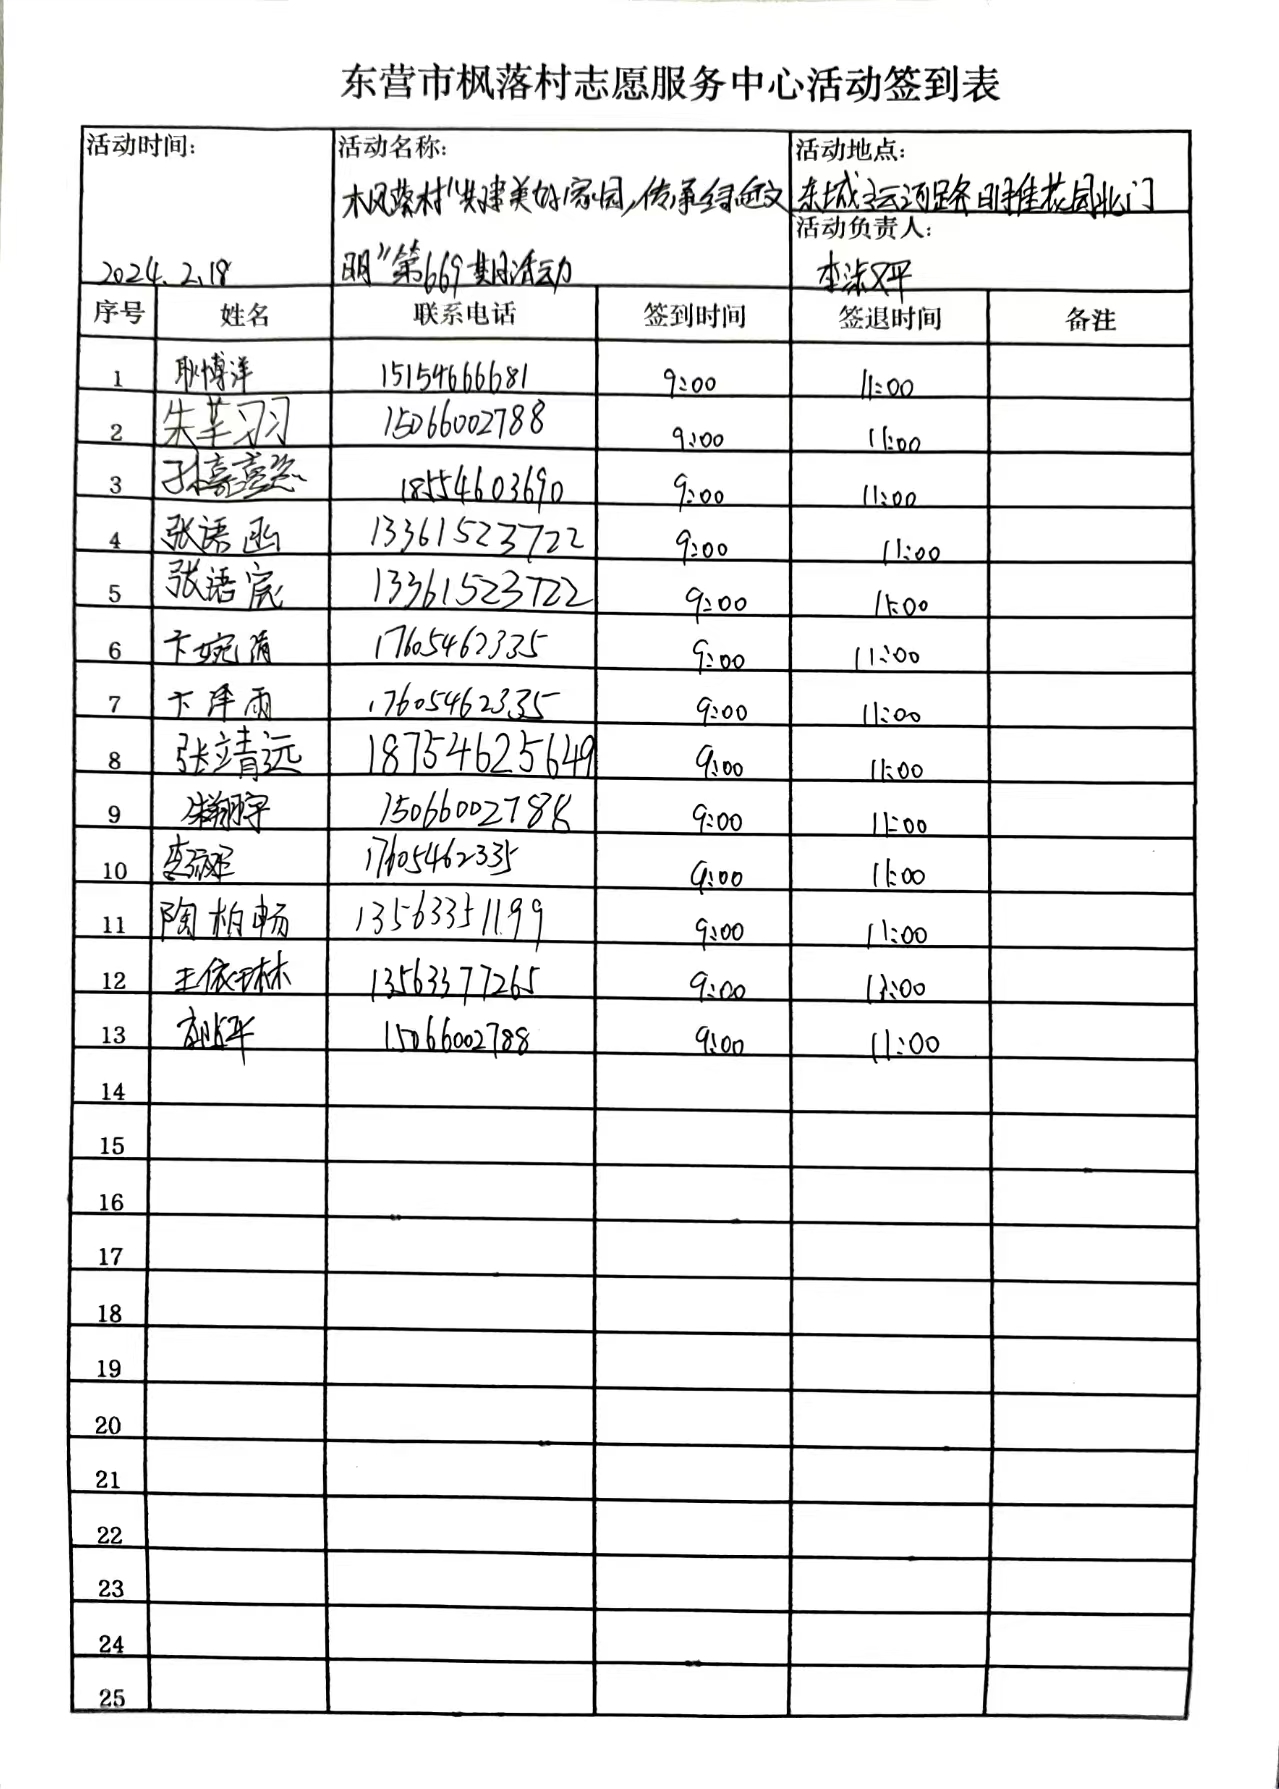 东营市枫落村志愿服务中心活动签到表
活动时间: 活动名称: 活动地点:
枫落村“共建美好家园,传承绿色文 东城运河路明雅花园北门
活动负责人:
2024.2.18 明”第669期活动 李淑平
序号 姓名 联系电话 签到时间 签退时间 备注
1 耿博洋 15154666681 9:00 11:00
2 朱芊习习 15066002788 9:00 11:00
3 孙嘉萱 18554603690 9:00 11:00
4 张语函 13361523722 9:00 11:00
5 张语宸 13361523722 9:00 11:00
6 卞婉清 17605462335 9:00 11:00
7 卞泽雨 17605462335 9:00 11:00
8 张靖远 18754625649 9:00 11:00
9 朱翔宇 15066002788 9:00 11:00
10 17605462335 9:00 11:00
11 陶柏畅 13563351199 9:00 11:00
12 王依琳 13563377265 9:00 11:00
13 15066002788 9:00 11:00
14
15
16
17
18
19
20
21
22
23
24
25